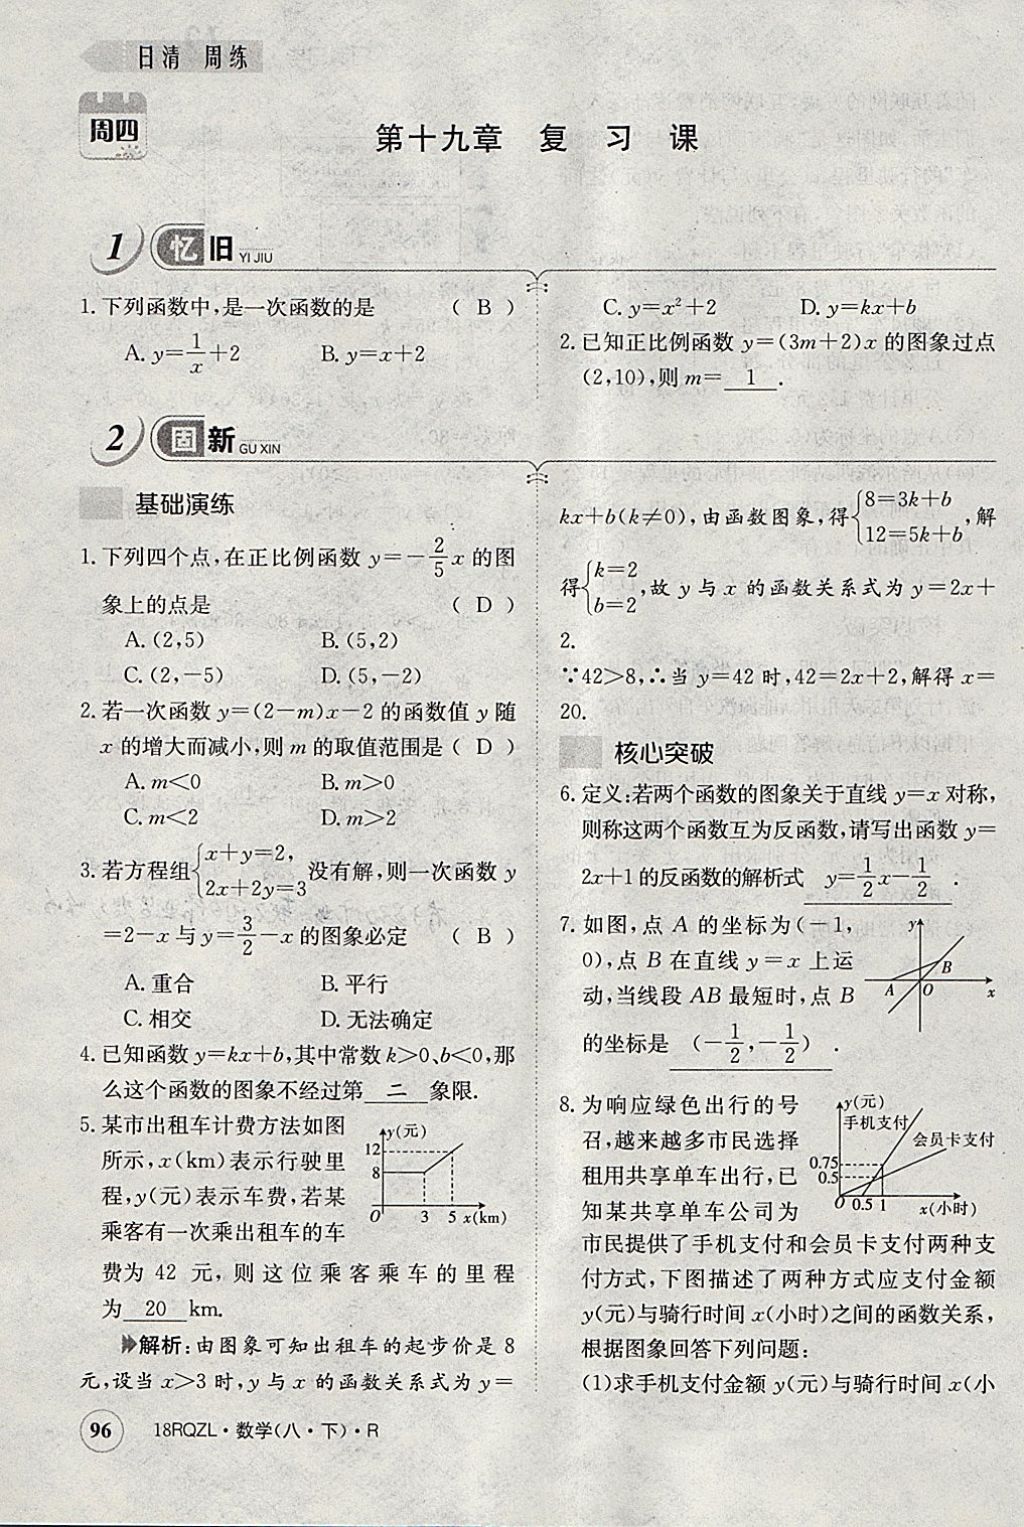 日清 周练
周四
第十九章 复习课
1 忆旧 YI JIU
1. 下列函数中,是一次函数的是 ( B )
A. y=1/x+2 B. y=x+2
C. y=x²+2 D. y=kx+b
2. 已知正比例函数 y=(3m+2)x 的图象过点
(2,10),则 m= 1 .
2 固新 GU XIN
基础演练
1. 下列四个点,在正比例函数 y=-2/5x 的图
象上的点是 ( D )
A. (2,5) B. (5,2)
C. (2,-5) D. (5,-2)
2. 若一次函数 y=(2-m)x-2 的函数值 y 随
x 的增大而减小,则 m 的取值范围是 ( D )
A. m<0 B. m>0
C. m<2 D. m>2
3. 若方程组{x+y=2, 2x+2y=3 没有解,则一次函数 y
=2-x 与 y=3/2-x 的图象必定 ( B )
A. 重合 B. 平行
C. 相交 D. 无法确定
4. 已知函数 y=kx+b,其中常数 k>0、b<0,那
么这个函数的图象不经过第 二 象限.
5. 某市出租车计费方法如图
所示,x(km)表示行驶里
程,y(元)表示车费,若某
乘客有一次乘出租车的车
费为 42 元,则这位乘客乘车的里程
为 20 km.
y(元)
12
8
O 3 5 x(km)
解析:由图象可知出租车的起步价是 8
元,设当 x>3 时,y 与 x 的函数关系式为 y=
kx+b(k≠0),由函数图象,得{8=3k+b 12=5k+b,解
得{k=2 b=2,故 y 与 x 的函数关系式为 y=2x+
2.
∵42>8,∴当 y=42 时,42=2x+2,解得 x=
20.
核心突破
6. 定义:若两个函数的图象关于直线 y=x 对称,
则称这两个函数互为反函数,请写出函数 y=
2x+1 的反函数的解析式 y=1/2x-1/2 .
7. 如图,点 A 的坐标为(-1,
0),点 B 在直线 y=x 上运
动,当线段 AB 最短时,点 B
的坐标是 (-1/2,-1/2) .
y
B
A O x
8. 为响应绿色出行的号
召,越来越多市民选择
租用共享单车出行,已
知某共享单车公司为
市民提供了手机支付和会员卡支付两种支
付方式,下图描述了两种方式应支付金额
y(元)与骑行时间 x(小时)之间的函数关系,
根据图象回答下列问题:
y(元)
手机支付
会员卡支付
0.75
0.5
O 0.5 1 x(小时)
(1)求手机支付金额 y(元)与骑行时间 x(小
96 18RQZL·数学(八·下)·R